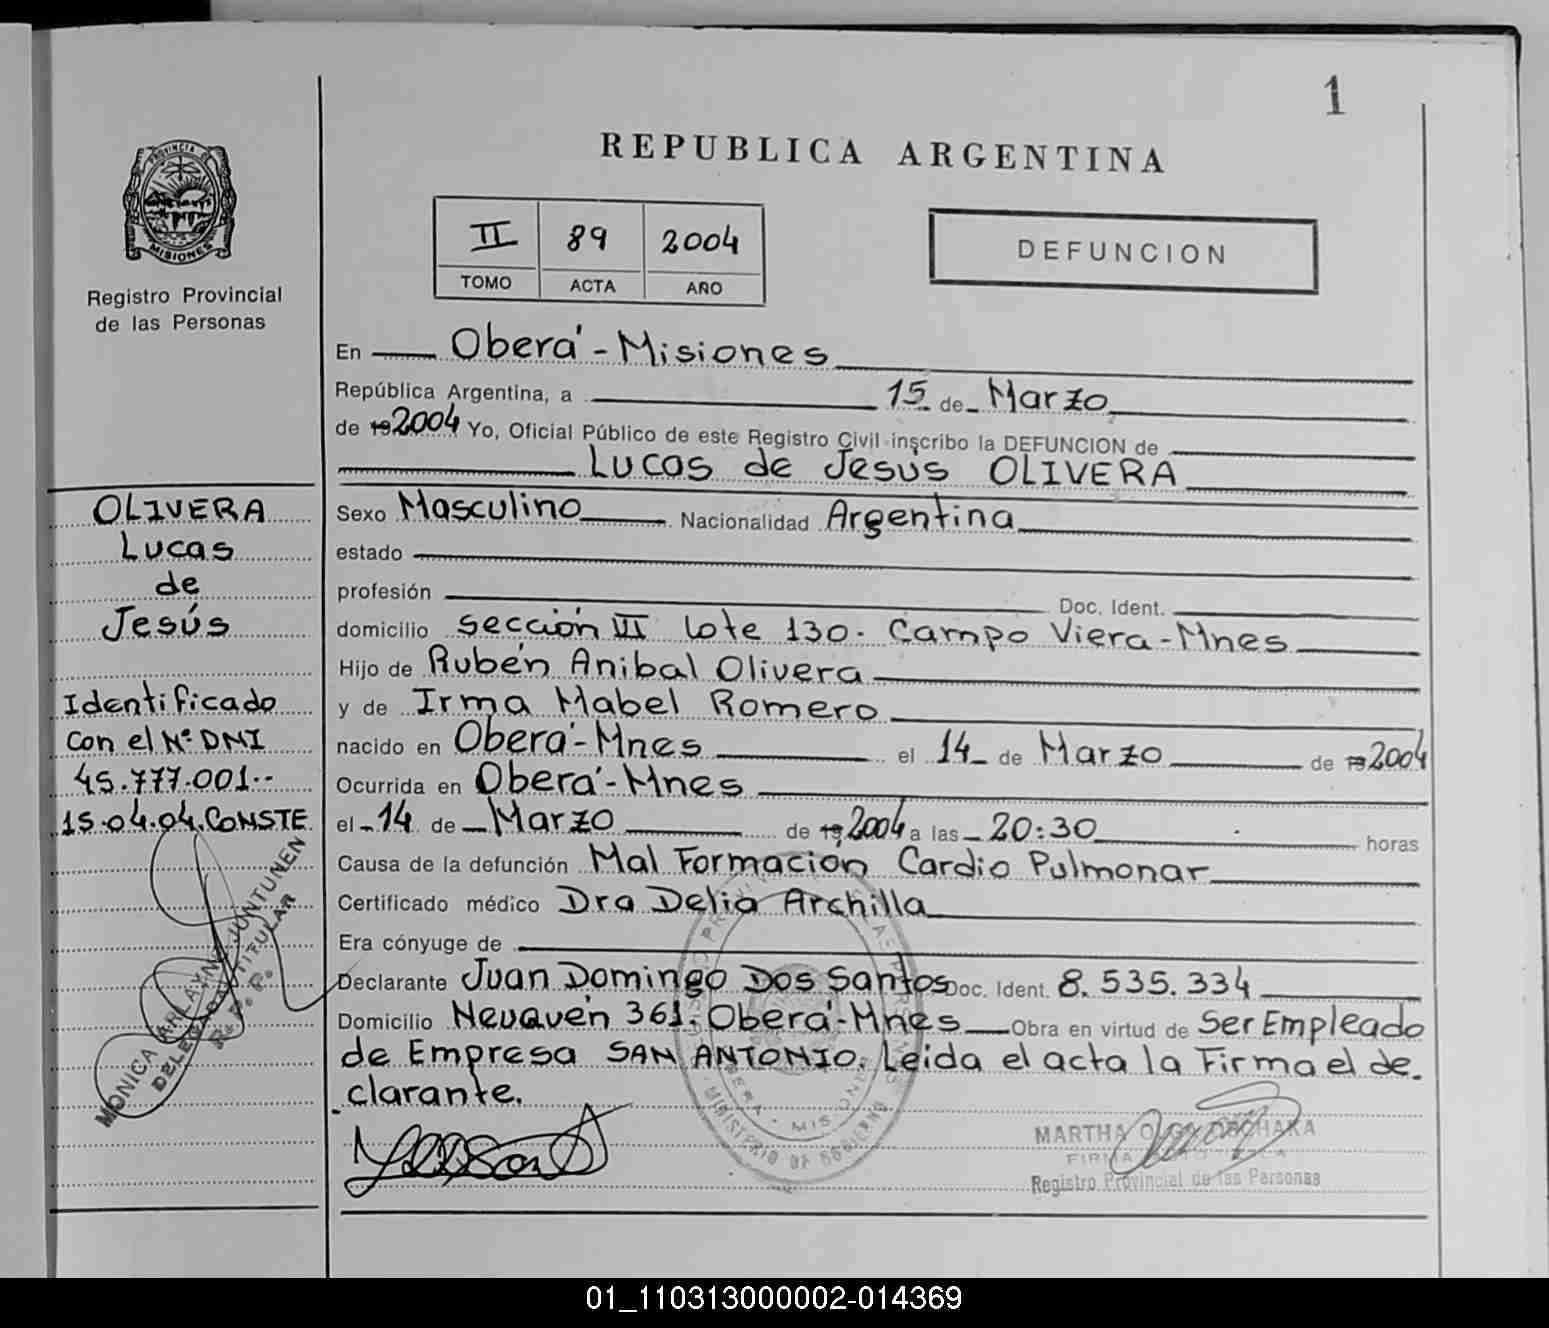 1
REPUBLICA ARGENTINA
PROVINCIA DE
MISIONES
Registro Provincial
de las Personas
II 89 2004
TOMO ACTA AÑO
DEFUNCION
En Oberá-Misiones
República Argentina, a 15 de Marzo
de 19 2004 Yo, Oficial Público de este Registro Civil inscribo la DEFUNCION de
Lucas de Jesús OLIVERA
Sexo Masculino Nacionalidad Argentina
estado
profesión Doc. Ident.
domicilio sección III lote 130. Campo Viera-Mnes
Hijo de Rubén Anibal Olivera
y de Irma Mabel Romero
nacido en Oberá-Mnes el 14 de Marzo de 19 2004
Ocurrida en Oberá-Mnes
el 14 de Marzo de 19 2004 a las 20:30 horas
Causa de la defunción Mal Formacion Cardio Pulmonar
Certificado médico Dra Delia Archilla
Era cónyuge de
Declarante Juan Domingo Dos Santos Doc. Ident. 8.535.334
Domicilio Neuquén 361. Oberá-Mnes Obra en virtud de Ser Empleado
de Empresa SAN ANTONIO. Leida el acta la Firma el de
clarante.
OLIVERA
Lucas
de
Jesús
Identificado
con el Nº DNI
45.777.001..
15.04.04. CONSTE
DELEGADA TITULAR
R. P. P.
MINISTERIO DE GOBIERNO
OBERA - MISIONES
MARTHA OLGA
Registro Provincial de las Personas
01_110313000002-014369